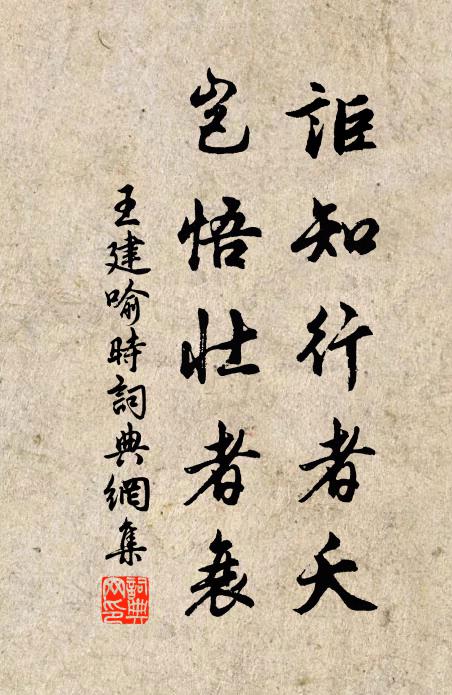 詎知行者夭
豈悟壯者衰
王建喻時詞典網集
詞典網印